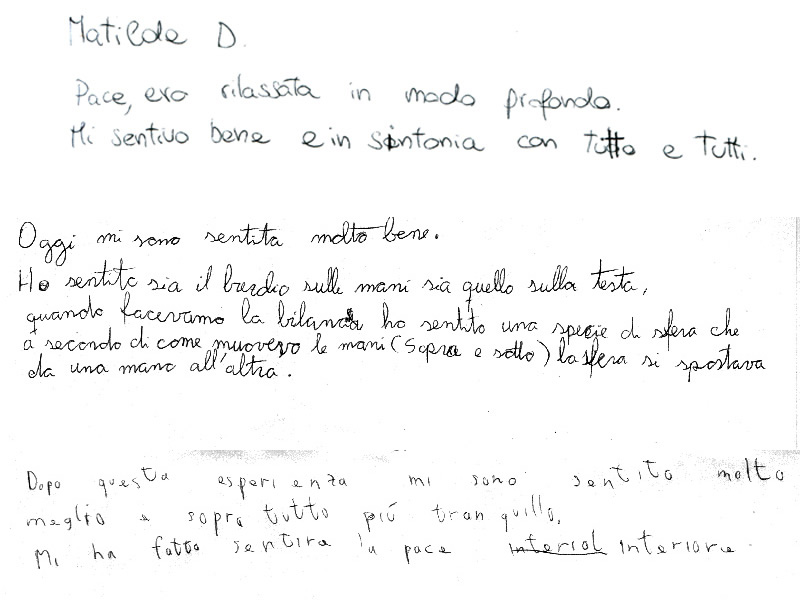 Matilde D.
Pace, ero rilassata in modo profondo.
Mi sentivo bene e in sintonia con tutto e tutti.
Oggi mi sono sentita molto bene.
Ho sentito sia il brudio sulle mani sia quello sulla testa,
quando facevamo la bilancia ho sentito una specie di sfera che
a secondo di come muovevo le mani (sopra e sotto) la sfera si spostava
da una mano all'altra.
Dopo questa esperienza mi sono sentito molto
meglio e sopra tutto più tranquillo,
Mi ha fatto sentire la pace interiol interiore.